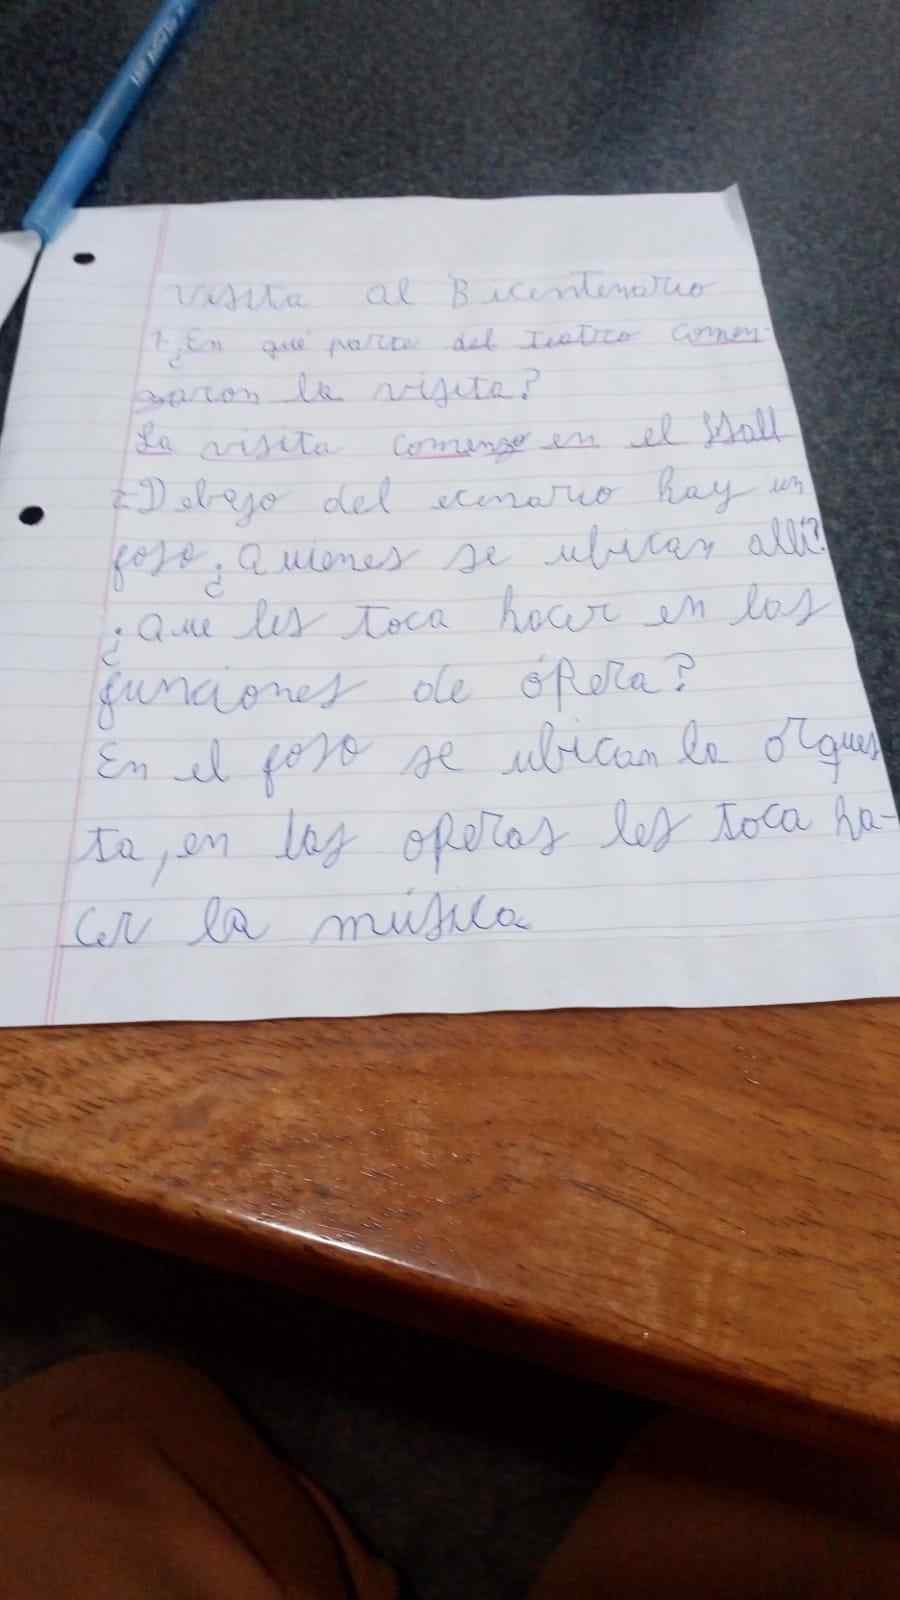 Visita al Bicentenario
1-¿En qué parte del teatro comen-
zaron la visita?
La visita comenzo en el Hall
2-Debajo del ecenario hay un
foso ¿Quienes se ubican allí?
¿Que les toca hacer en las
funciones de ópera?
En el foso se ubican la orques
ta, en las operas les toca ha-
cer la música